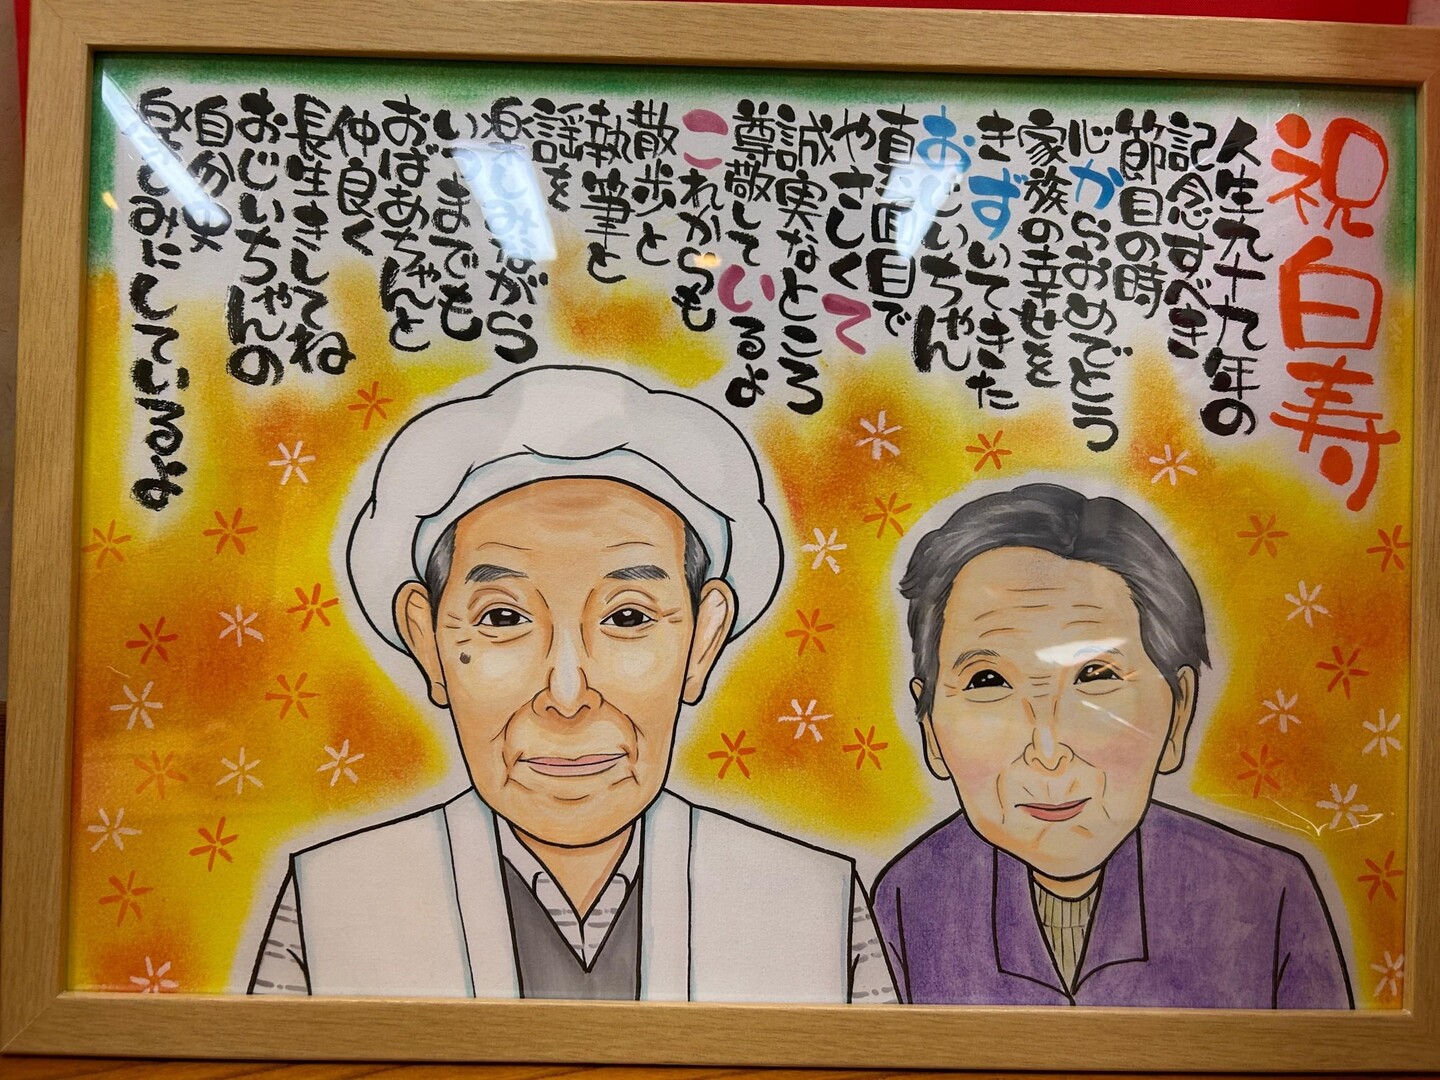 祝白寿
人生九十九年の
記念すべき
節目の時
心からおめでとう
家族の幸せを
きずいてきた
おじいちゃん
真面目で
やさしくて
誠実なところ
尊敬しているよ
これからも
散歩と
執筆と
謡を
楽しみながら
いつまでも
おばあちゃんと
仲良く
長生きしてね
おじいちゃんの
自分史
楽しみにしているよ